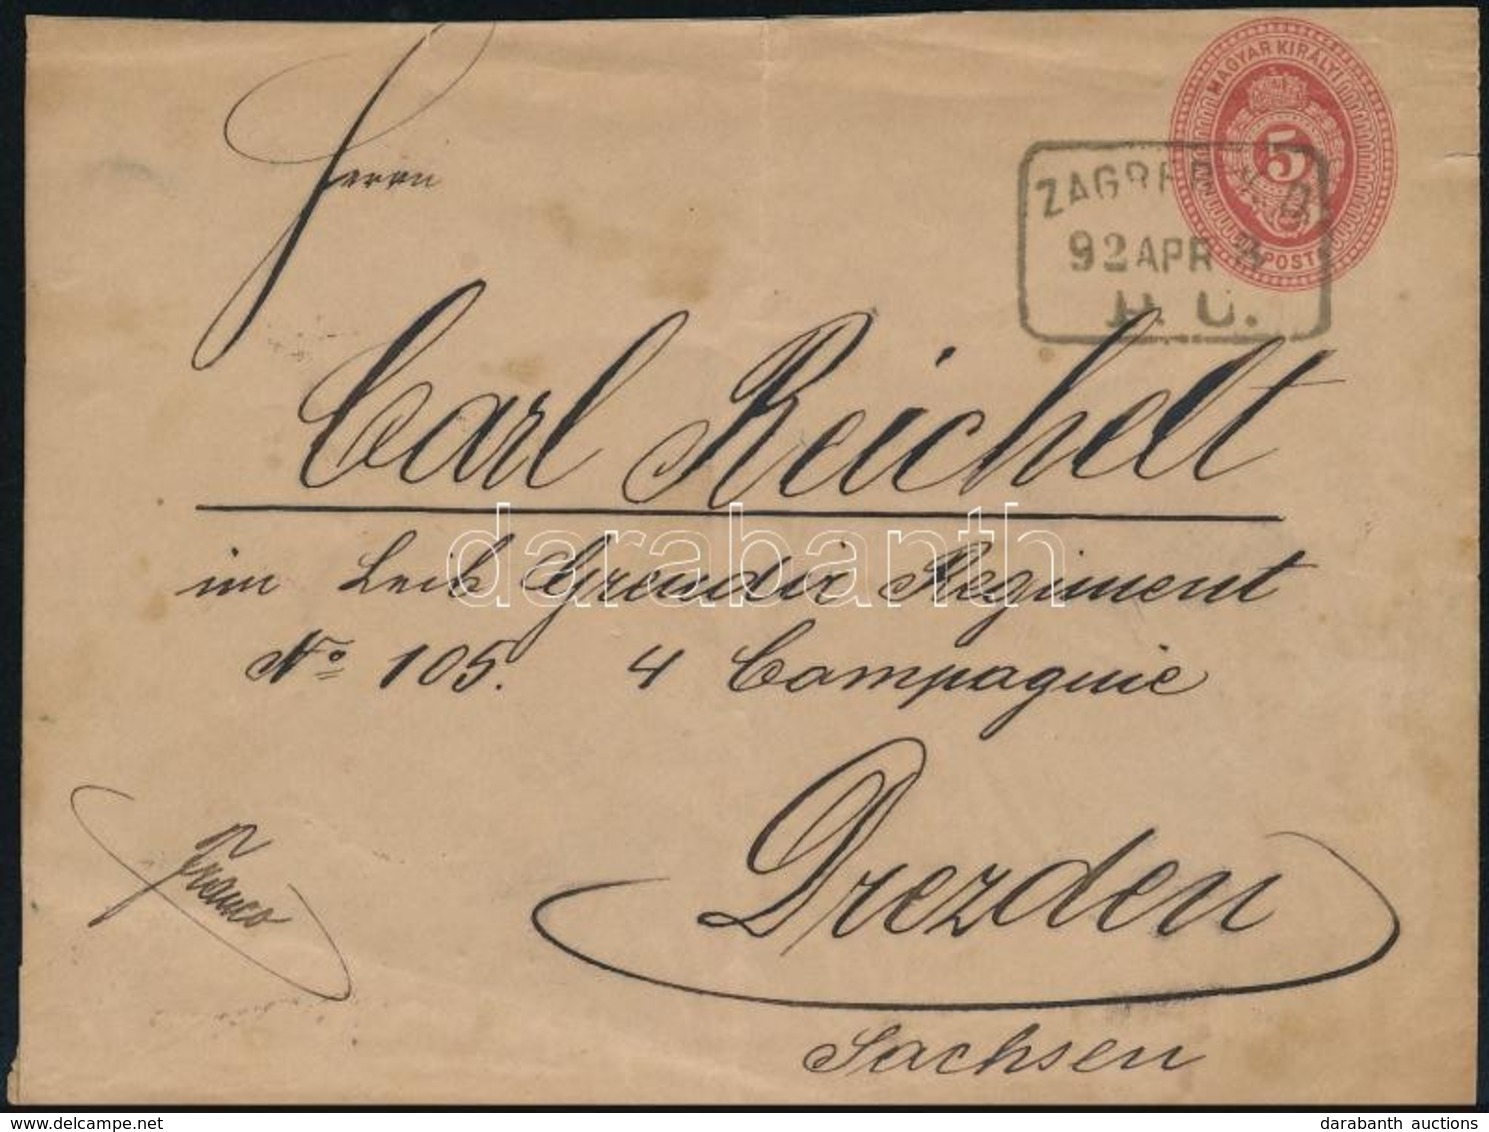 MAGYAR KIRÁLYI
5
POSTA
ZAGREB
92 APR
Herrn
Carl Reichelt
im Leib Grendir Regiment
No 105. 4 Compagnie
Drezden
Franco
Sachsen
darabanth
darabanth auctions